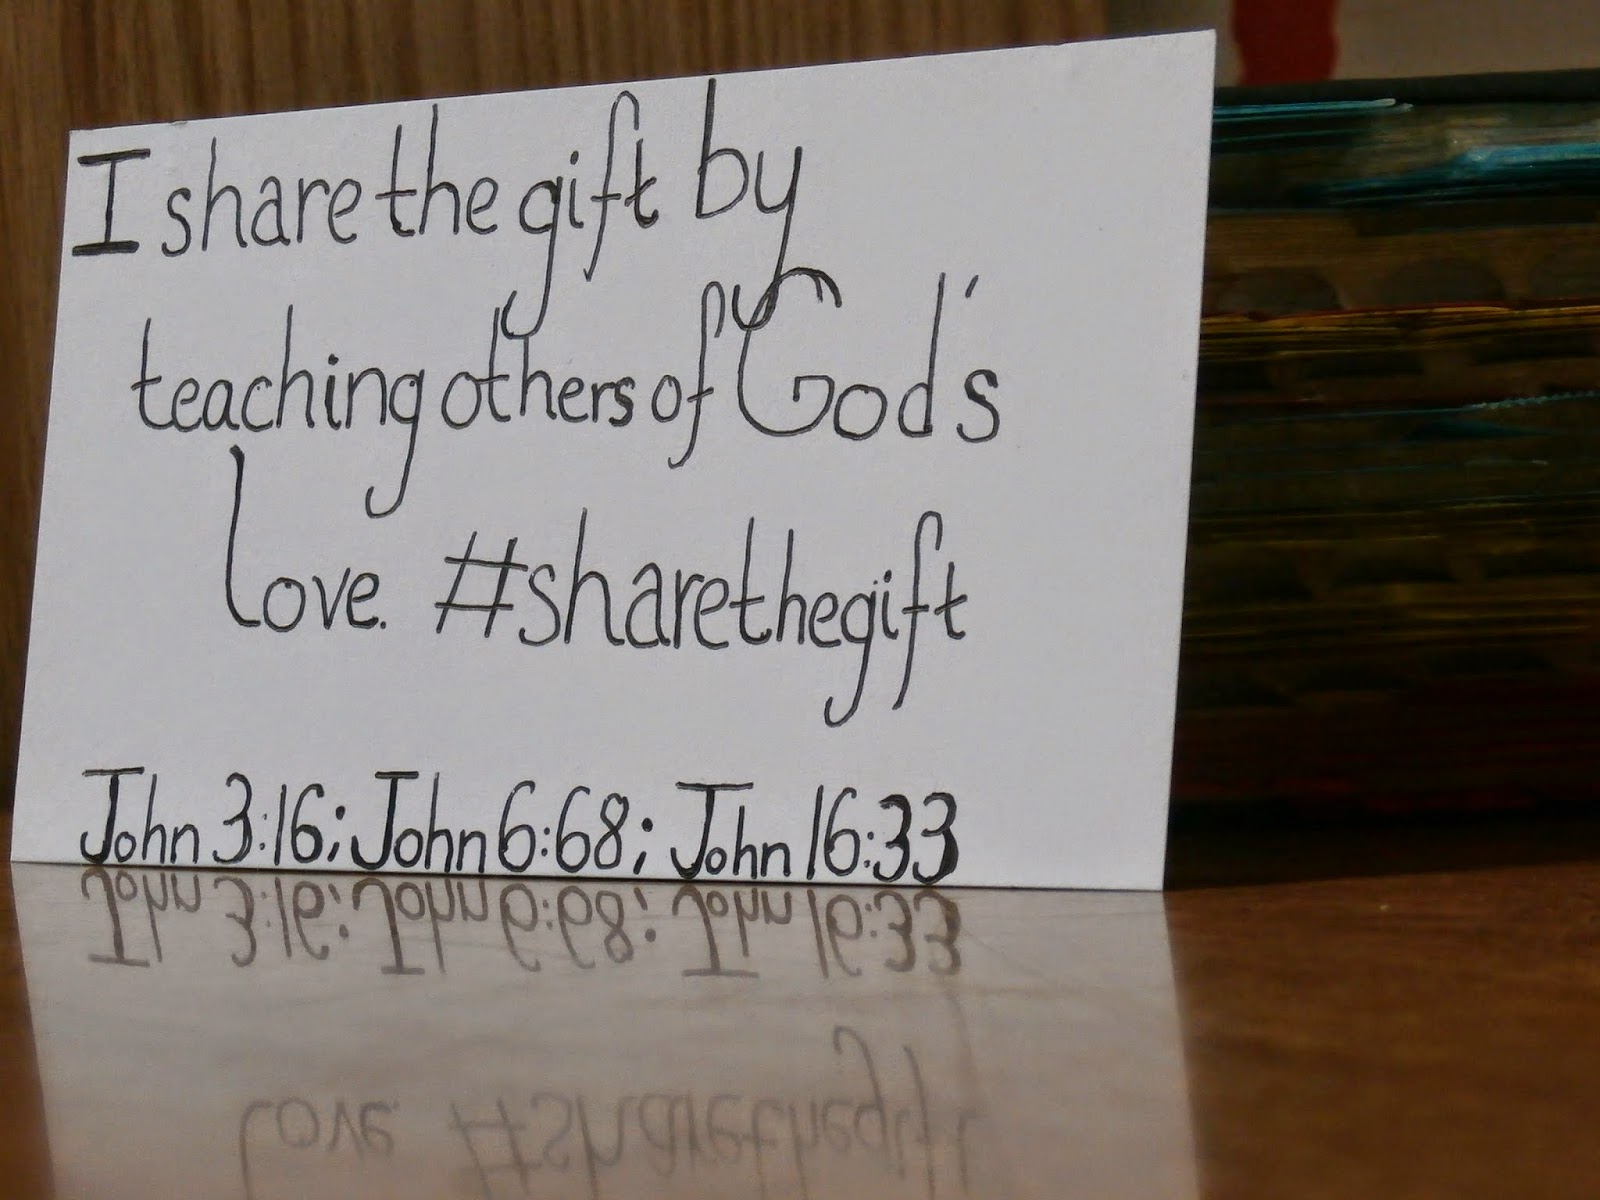 I share the gift by
teaching others of God's
love. #sharethegift
John 3:16; John 6:68; John 16:33